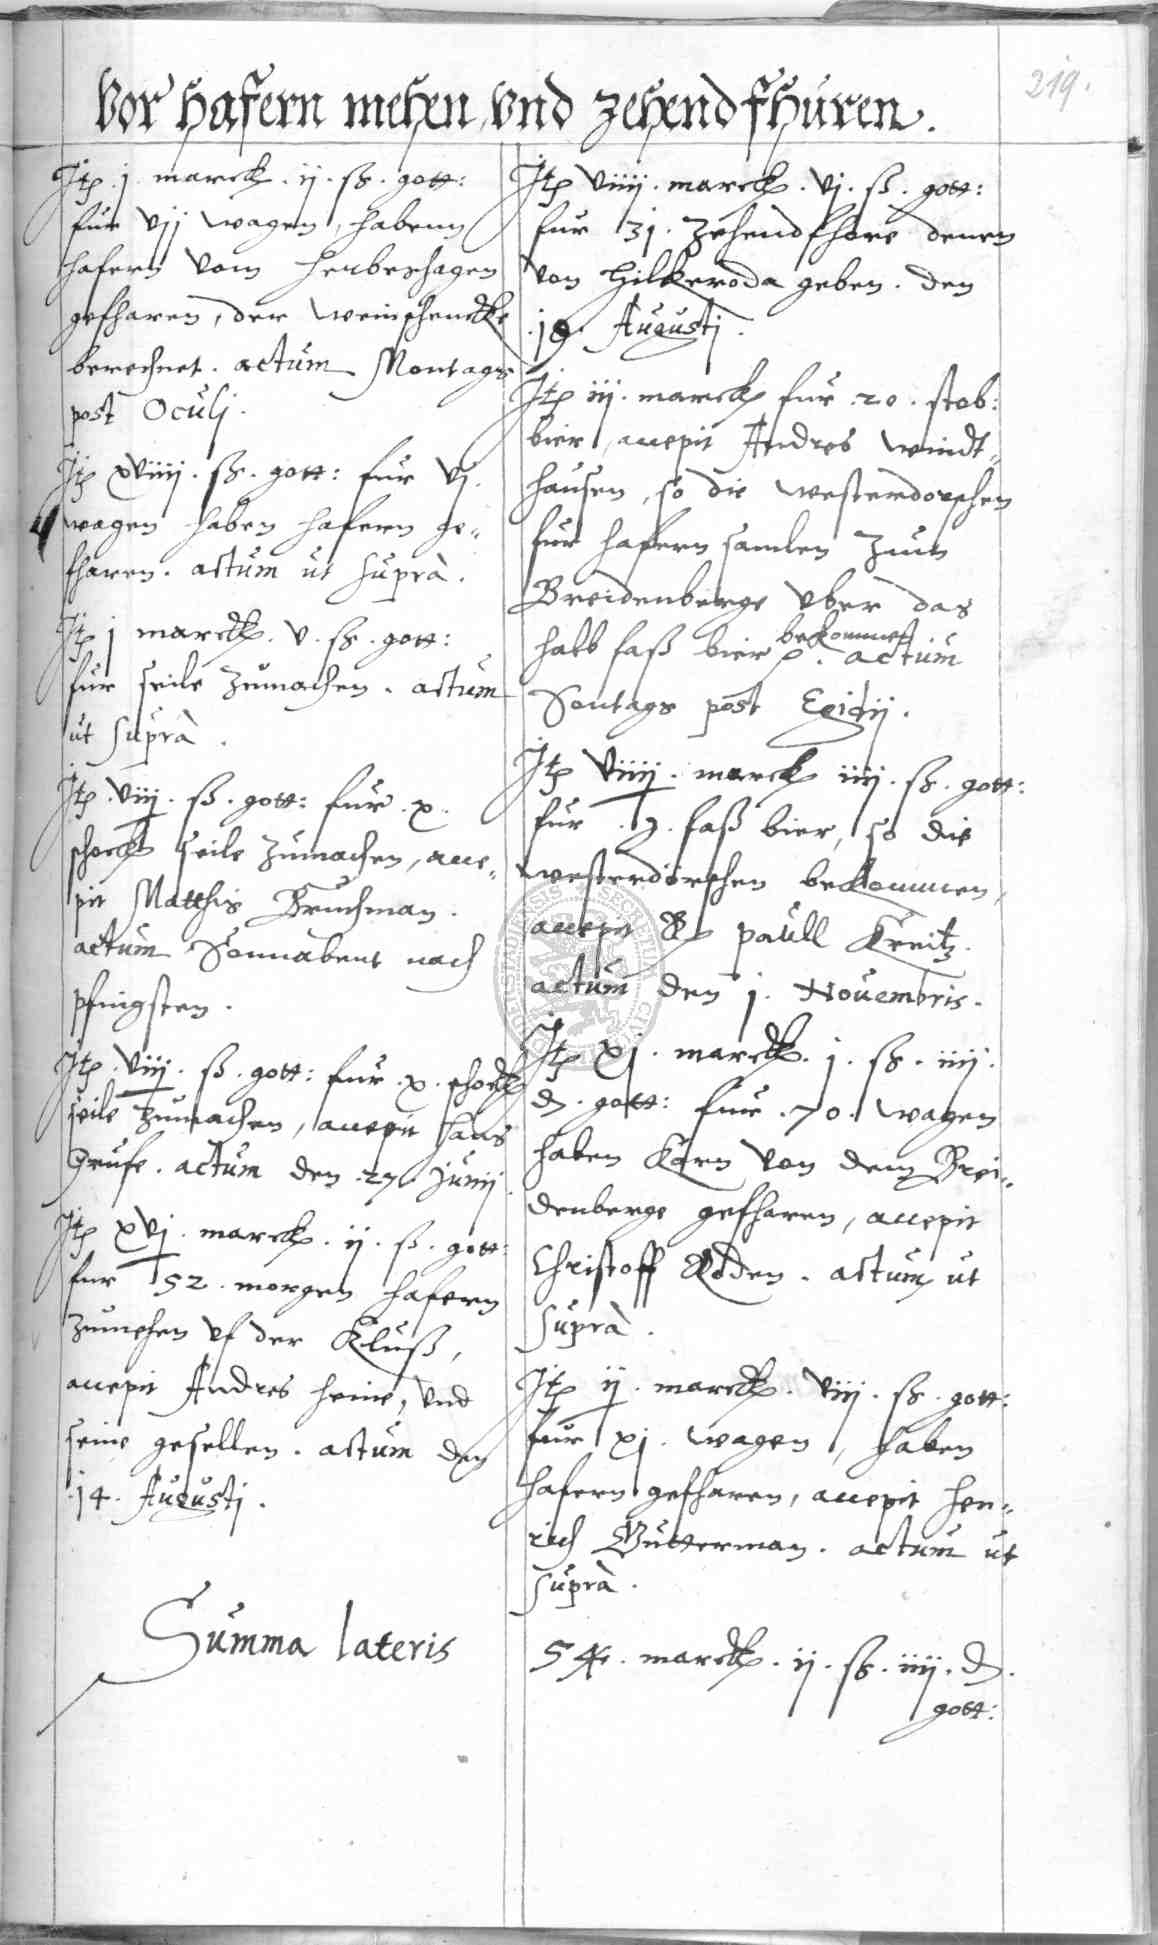 219.
Vor hafern mehen vnd zehendfhuren.
Itp. j. marck. ij. ß. gott:
fur vij wagen, habenn
hafern vom herbeshagen
gefharen, der weinschencke
berechnet. actum Montags
post Oculj.
Itp xviiij. ß. gott: fur vj.
wagen haben hafern ge„
fharen. actum ut suprà.
Itp j marck. v. ß. gott:
fur seile zumachen. actum
ut suprà.
Itp. viij. ß. gott: fur. x.
schock seile zumachen, acce„
pit Matthis Bruchman.
actum Sonnabent nach
pfingsten.
Itp. viij. ß. gott: fur. x. schock
seile zumachen, accepit Hans
Grufe. actum den. 27. Junij.
Itp xvj. marck. ij. ß. gott:
fur 52. morgen hafern
zumehen vf der Kluß,
accepit Andres Heine, vnd
seine gesellen. actum den
.14. Augustj.
Itp viiij. marck. vj. ß. gott:
fur 31. Zehendfhore denen
von Hilkeroda geben. den
.19. Augustj.
Itp iij. marck fur .20. stob:
bier, accepit Andres windt„
hausen, so die westerdorschen
fur hafern samlen zum
Breidenberge vber das
halb faß bier bekommen. actum
Sontags post Egidij.
Itp viiij. marck iiij. ß. gott:
fur . faß bier, so die
westerdörschen bekommen,
accepit paull Kreitz.
actum den j. Nouembris.
Itp xj. marck. j. ß. iiij.
d. gott: fur .70. wagen
haben Korn von dem Brei„
denberge gefharen, accepit
Christoff Rodden. actum ut
suprà.
Itp ij. marck. viij. ß. gott:
fur xj. wagen, haben
hafern gefharen, accepit Hen„
rich Gutterman. actum ut
suprà.
Summa lateris
54. marck. ij. ß. iiij. d.
gott: